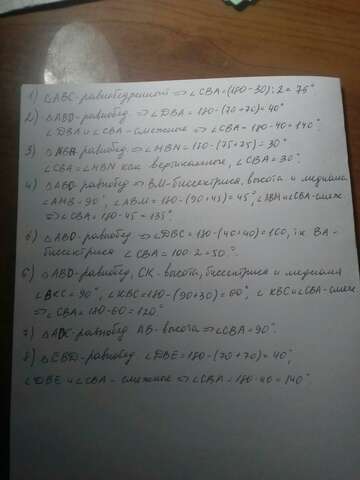 1) △ABC-равнобедренный ⇒ ∠CBA=(180-30):2=75°
2) △ABD-равнобед ⇒ ∠DBA=180-(70+70)=40°
∠DBA и ∠CBA-смежное ⇒ ∠CBA=180-40=140°
3) -равнобед ⇒ ∠MBN=180-(75+75)=30°
∠CBA=∠MBN как вертикальное, ∠CBA=30°.
4) △ABD-равнобед ⇒ BM-биссектриса, высота и медиана
∠AMB=90°, ∠ABM=180-(90+45)=45°, ∠ABM и ∠CBA-смеж
⇒ ∠CBA=180-45=135°.
5) △ABD-равнобед ⇒ ∠DBC=180-(40+40)=100, т.к BA-
биссектриса ∠CBA=100:2=50°.
6) △ABD-равнобед, CK-высота, биссектриса и медиана
∠BKC=90°, ∠KBC=180-(90+30)=60°, ∠KBC и ∠CBA-смеж.
⇒ ∠CBA=180-60=120°
7) -равнобед AB-высота ⇒ ∠CBA=90°.
8) △EBD-равнобед ∠DBE=180-(70+70)=40°,
∠DBE и ∠CBA-смежное ⇒ ∠CBA=180-40=140°